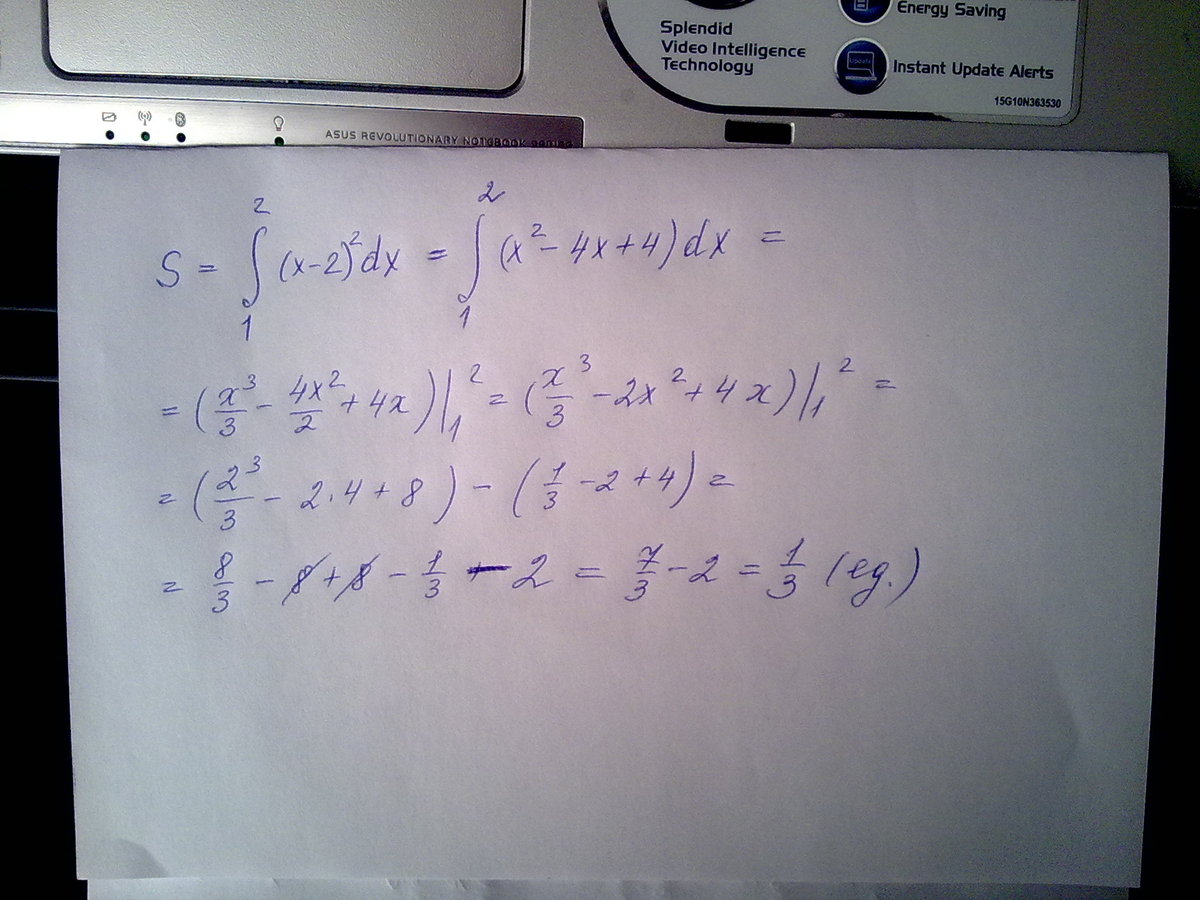 Energy Saving
Splendid
Video Intelligence
Technology
Instant Update Alerts
15G10N363530
ASUS REVOLUTIONARY NOTEBOOK series
S = ∫₁² (x-2)² dx = ∫₁² (x² - 4x + 4) dx =
= (x³/3 - 4x²/2 + 4x)|₁² = (x³/3 - 2x² + 4x)|₁² =
= (2³/3 - 2·4 + 8) - (1/3 - 2 + 4) =
= 8/3 - 8 + 8 - 1/3 - 2 = 7/3 - 2 = 1/3 (eg.)